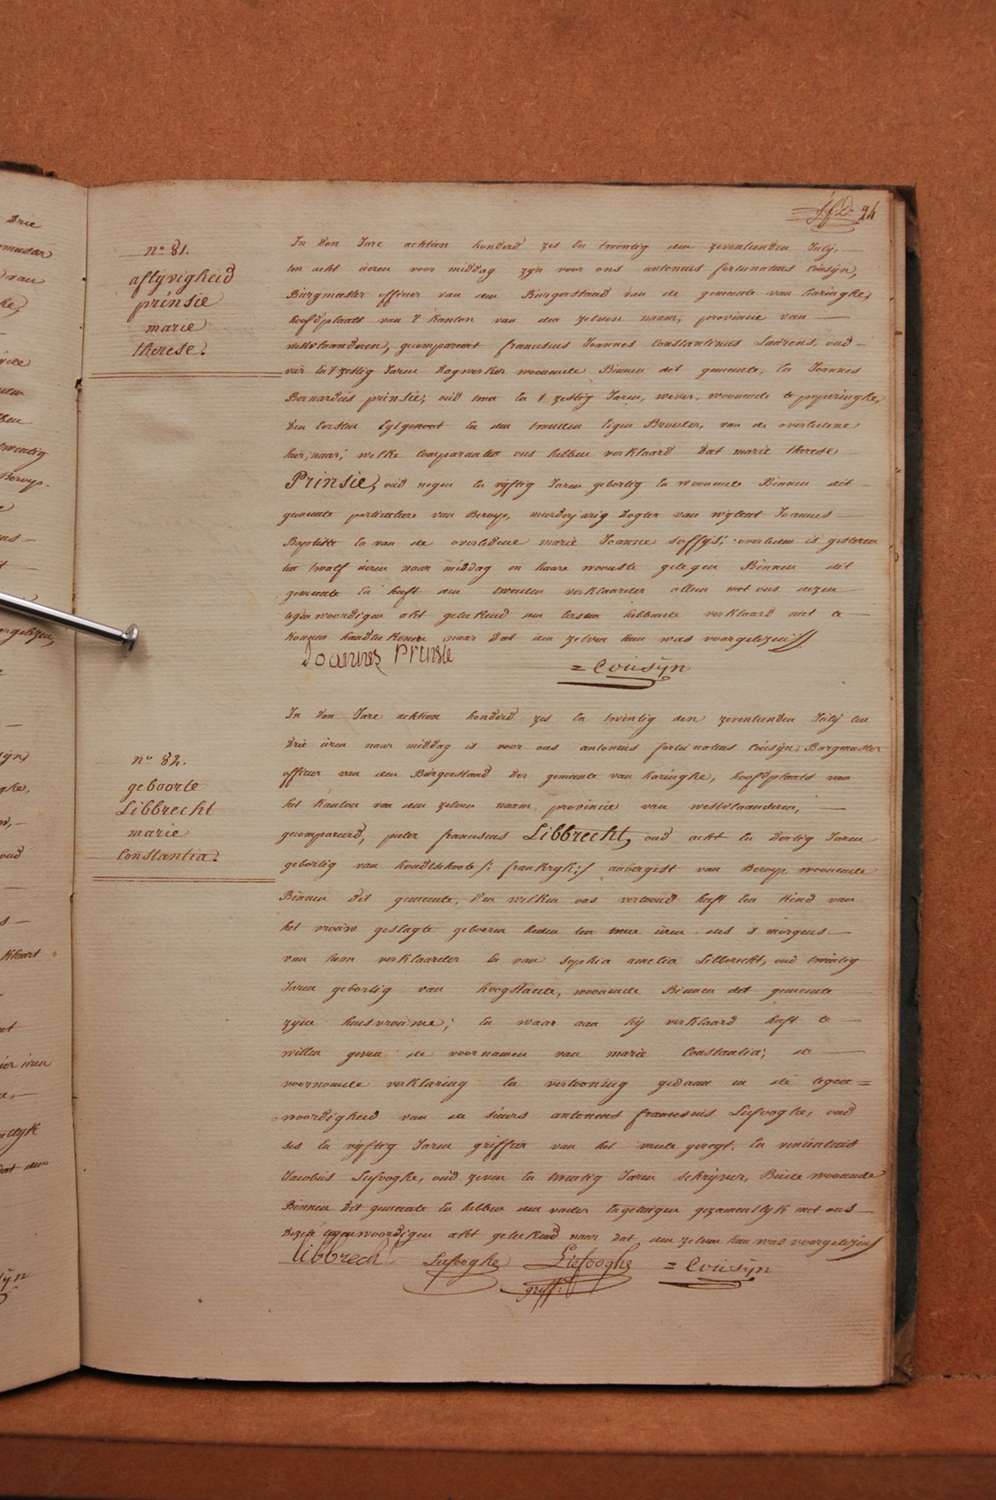 24
n.º 81.
aflyvigheid
prinsie
marie
therese.
In den Jare achtien honderd zes en twintig den zeventienden July,
ten acht uren voor middag zyn voor ons antonius fortunatus Cousyn,
Burgmeester officier van den Burgerstand van de gemeente van haringhe,
hoofdplaats van 't kanton van den zelven naam, provincie van
westvlaanderen, gecompareert franciscus Joannes Constantinus Laurens, oud
vier en 't zestig Jaren dagwerker woonende Binnen dit gemeente, en Joannes
Bernardus prinsie, oud twee en t zestig Jaren, wever, woonende te poperinghe,
den Eersten en den tweeden eigen Broeder, van de overledene
hier naer; welke comparanten ons hebben verklaard dat marie therese
Prinsie, oud negen en vyftig Jaren gebortig en woonende Binnen dit
gemeente particuliere van Beroep, meerderjarig dogter van wylent Joannes
Baptiste en van de overledene marie Joanne soffys; overleden is gisteren
ten twaelf uren naer middag in haere woonste gelegen Binnen dit
gemeente en heeft den tweeden verklaarder alleen met ons dezen
tegenwoordigen akt geteekend den eersten hebbende verklaard niet te
konnen handteekenen naer dat den zelven hun was voorgelezen
Joannes Prinsie
= Cousyn
n.º 82.
geboorte
Libbrecht
marie
Constantia.
In den Jare achtien honderd zes en twintig den zeventienden July ten
drie uren naer middag is voor ons antonius fortunatus Cousyn, Burgmeester
officier van den Burgerstand der gemeente van haringhe, hoofdplaats van
het kanton van den zelven naam provincie van westvlaanderen,
gecompareerd, pieter franciscus Libbrecht, oud acht en dertig Jaren
gebortig van hondschoote /: frankryk :/ aubergist van Beroep woonende
Binnen dit gemeente, den welken ons vertoond heeft een kind van
het vrouw geslagte geboren heden ten twee uren des s morgens
van hem verklaarder en van sophia amelia Lilbrecht, oud twintig
Jaren gebortig van hoogstaede, woonende Binnen dit gemeente
zyne huisvrouwe; en waar aan hy verklaard heeft te
willen geven de voornamen van marie Constantia; de
voornoemde verklaring en vertooning gedaan in de tegen=
woordigheid van de sieurs antonius franciscus Liefooghe, oud
ses en vyftig Jaren griffier van het vrede geregt, en
Jacobus Liefooghe, oud zeven en twentig Jaren schryver, Beide woonende
Binnen dit gemeente en hebben den vader en getuigen gezamentlyk met ons
dezen tegenwoordigen akt geteekend naer dat den zelven hun was voorgelezen
libbrecht Liefooghe Liefooghe = Cousyn
griff: